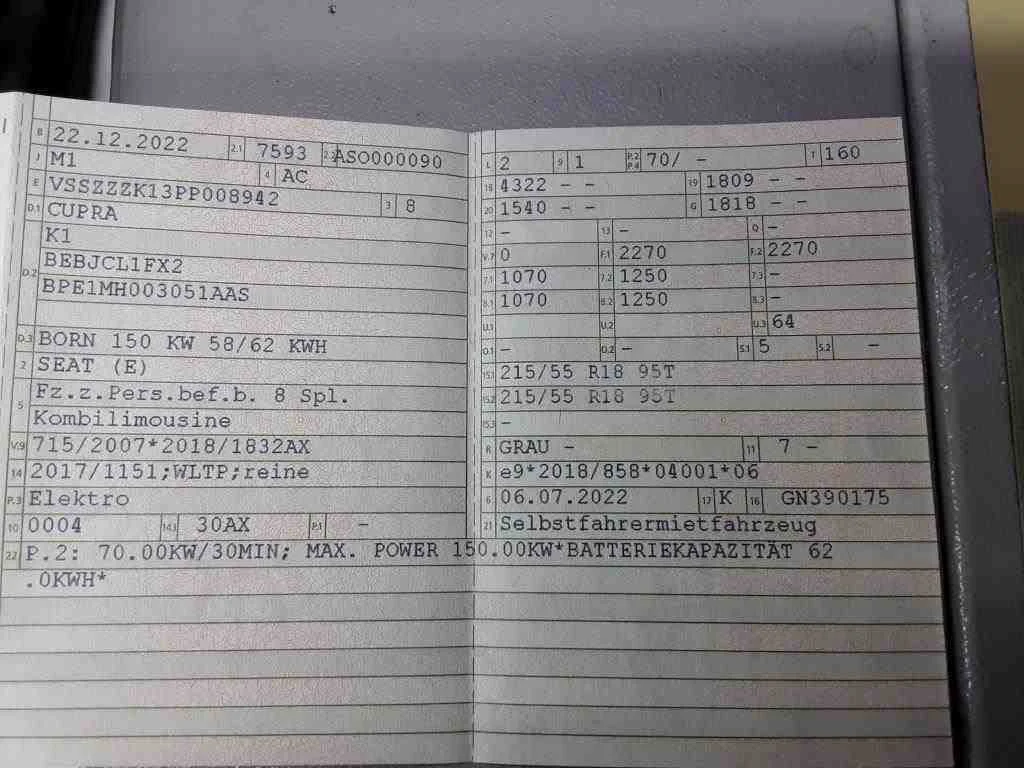 B 22.12.2022 2.1 7593 2.2 ASO000090
J M1 4 AC
E VSSZZZK13PP008942 3 8
D.1 CUPRA
K1
D.2 BEBJCL1FX2
BPE1MH003051AAS
D.3 BORN 150 KW 58/62 KWH
2 SEAT (E)
5 Fz.z.Pers.bef.b. 8 Spl.
Kombilimousine
V.9 715/2007*2018/1832AX
14 2017/1151;WLTP;reine
P.3 Elektro
10 0004 14.1 30AX P.1 –
L 2 9 1 P.2 P.4 70/ – T 160
18 4322 – – 19 1809 – –
20 1540 – – G 1818 – –
12 – 13 – Q –
V.7 0 F.1 2270 F.2 2270
7.1 1070 7.2 1250 7.3 –
8.1 1070 8.2 1250 8.3 –
U.1 U.2 U.3 64
O.1 – O.2 – S.1 5 S.2 –
15.1 215/55 R18 95T
15.2 215/55 R18 95T
15.3 –
R GRAU – 11 7 –
K e9*2018/858*04001*06
6 06.07.2022 17 K 16 GN390175
21 Selbstfahrermietfahrzeug
22 P.2: 70.00KW/30MIN; MAX. POWER 150.00KW*BATTERIEKAPAZITÄT 62
.0KWH*